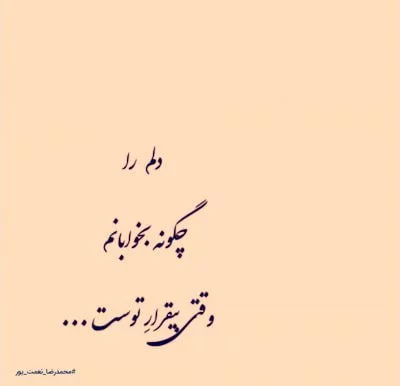 دلم را
چگونه بخوابانم
وقتی بیقرارِ توست ...
#محمدرضا_نعمت_پور